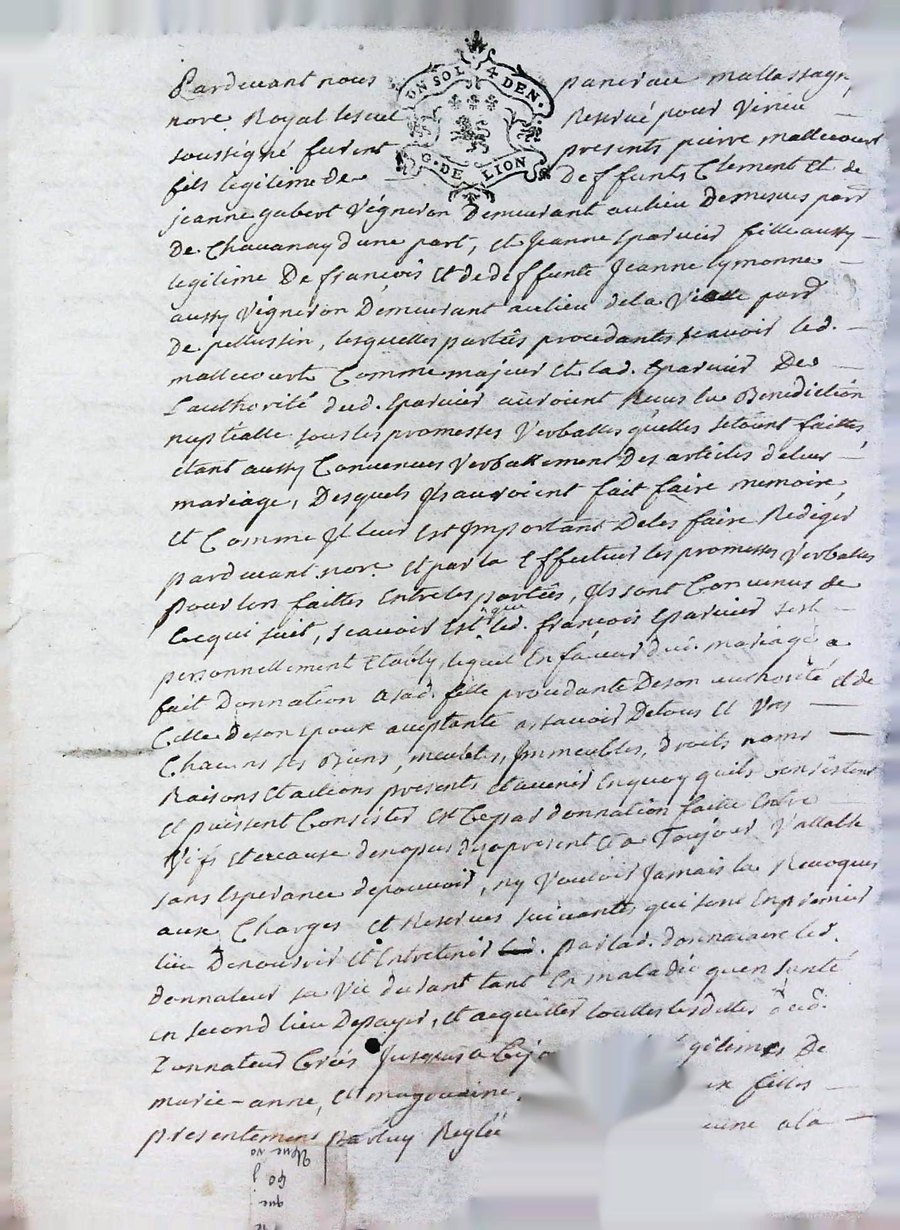 Pardevant nous
UN SOL 4 DEN.
G. DE LION
nore Royal
Reservé pour Virieu
soussigné furent presents pierre mallecourt
fils legitime de deffunts Clement Et de
jeanne gabert Vigneron Demeurant au lieu De mesves parr
De Chavanay dune part, Et Jeanne Eparvier fille aussy
legitime De françois Et de deffunte Jeanne Symonne
aussy Vigneron Demeurant au lieu de la parr
De pellussin, lesquelles parties procedantes scavoir led.
mallecourt Comme majeur Et lad. Eparvier De
L'authorité dud. Eparvier auroient Reçus La Benediction
nuptialle sous les promesses Verballes quelles setoint faittes,
étant aussy Convenues Verballement Des articles de leur
mariage, Desquels Ils auroient fait faire memoire,
Et Comme Il leur Est Important De les faire Rediger
pardevant nore. Et par la Effectuer les promesses Verballes
pour lors faittes Entre les parties, Ils sont Convenus de
Ce qui suit, scavoir Est que led. françois Eparvier sest
personnellement Etably, lequel En faveur dud. mariage a
fait Donnation a sad. fille procedante De son authorité et de
Celle de son Epoux acceptante a scavoir De tous Et Uns
Chacuns ses Biens, meubles, Immeubles, Droits noms
Raisons Et actions presents Et avenir En quoy quils Consistent
Et puissent Consister Et Ce par donnation faitte Entre
Vifs Et a cause de nopces des a present Et a Toujours Vallable
sans Esperance de pouvoir, ny Vouloir Jamais la Revoquer
aux Charges Et Reserves suivantes qui sont En premier
lieu De nourrir Et Entretenir par lad. donnataire led.
donnateur sa Vie durant tant En maladie quen santé
en second lieu De payer, Et acquitter touttes les dettes dud.
Donnateur Crées Jusques a Ce jo gitimes De
marie-anne, Et ux filles
presentement par luy Reglée a la